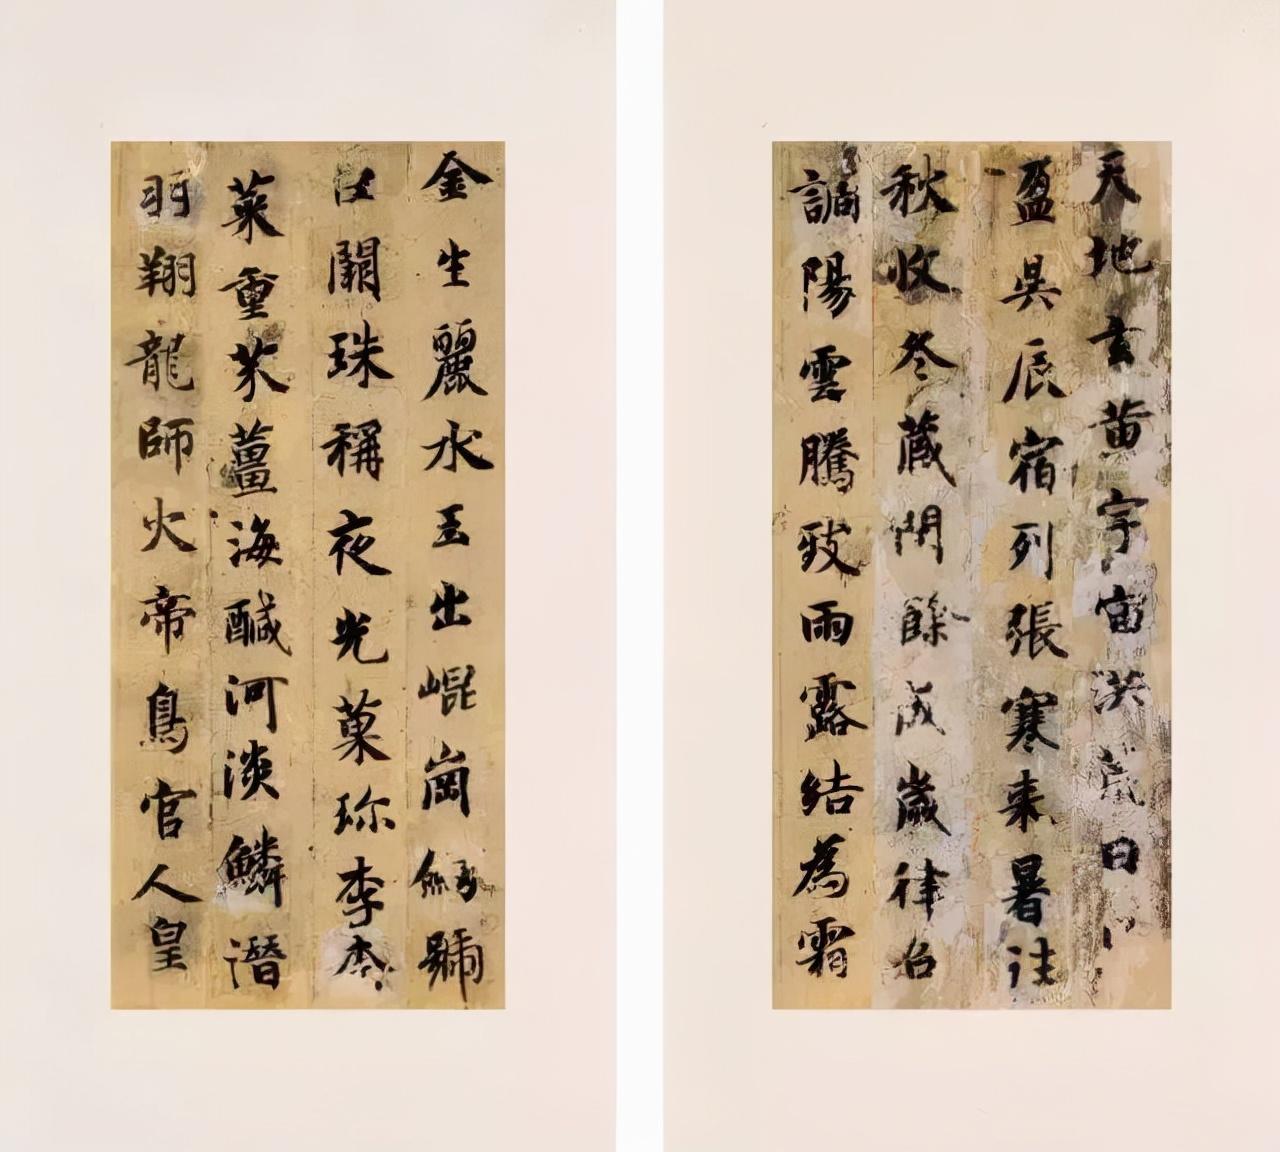 天地玄黄宇宙洪荒日
盈昃辰宿列張寒来暑往
秋收冬藏閏餘成歲律召
調陽雲騰致雨露結為霜
金生麗水玉出崐崗劒號
巨闕珠稱夜光菓珍李柰
菜重芥薑海鹹河淡鱗潛
羽翔龍師火帝鳥官人皇